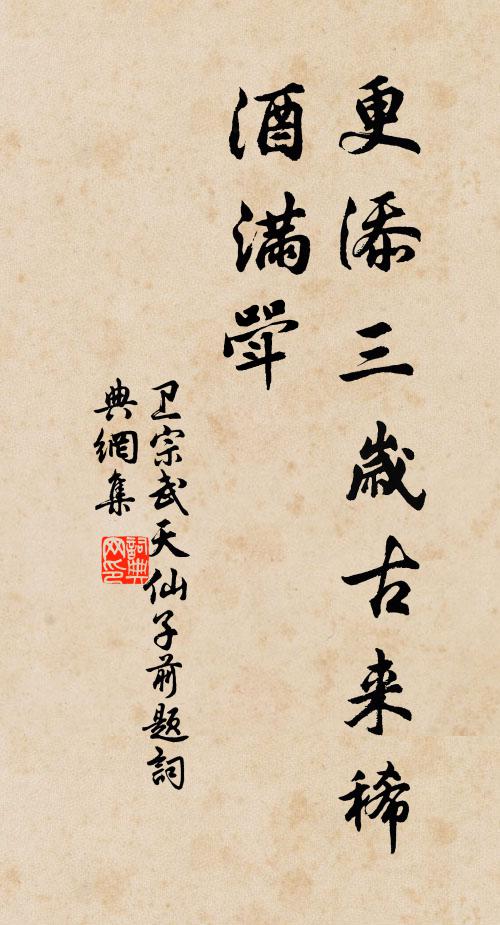 更添三歳古来稀
酒満斝
卫宗武天仙子前題詞
典網集
詞典
网印